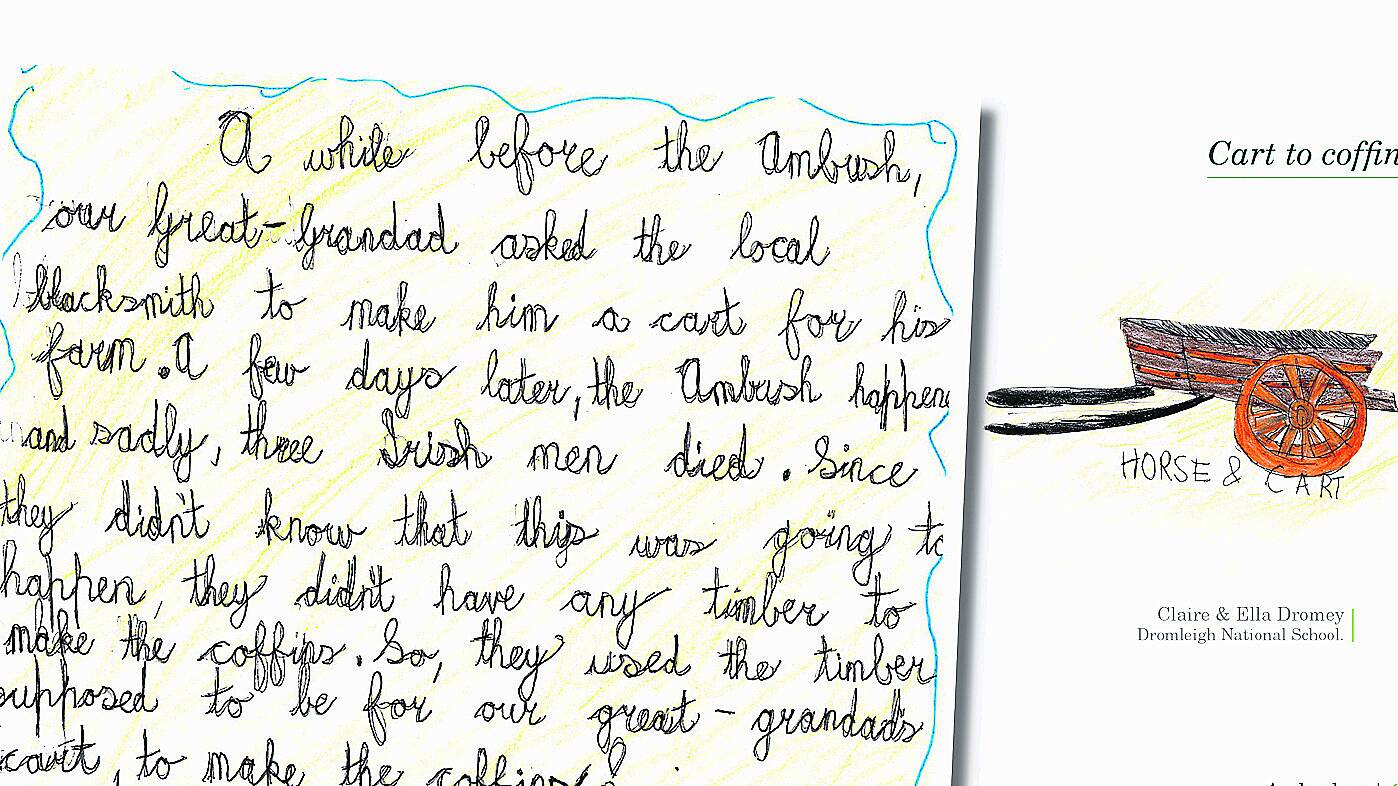 A while before the Ambush,
our Great-Grandad asked the local
blacksmith to make him a cart for his
farm. A few days later, the Ambush happen
and sadly, three Irish men died. Since
they didn't know that this was going to
happen, they didn't have any timber to
make the coffins. So, they used the timber
supposed to be for our great-grandad's
cart, to make the coffins!
Cart to coffin
HORSE & CART
Claire & Ella Dromey
Dromleigh National School.